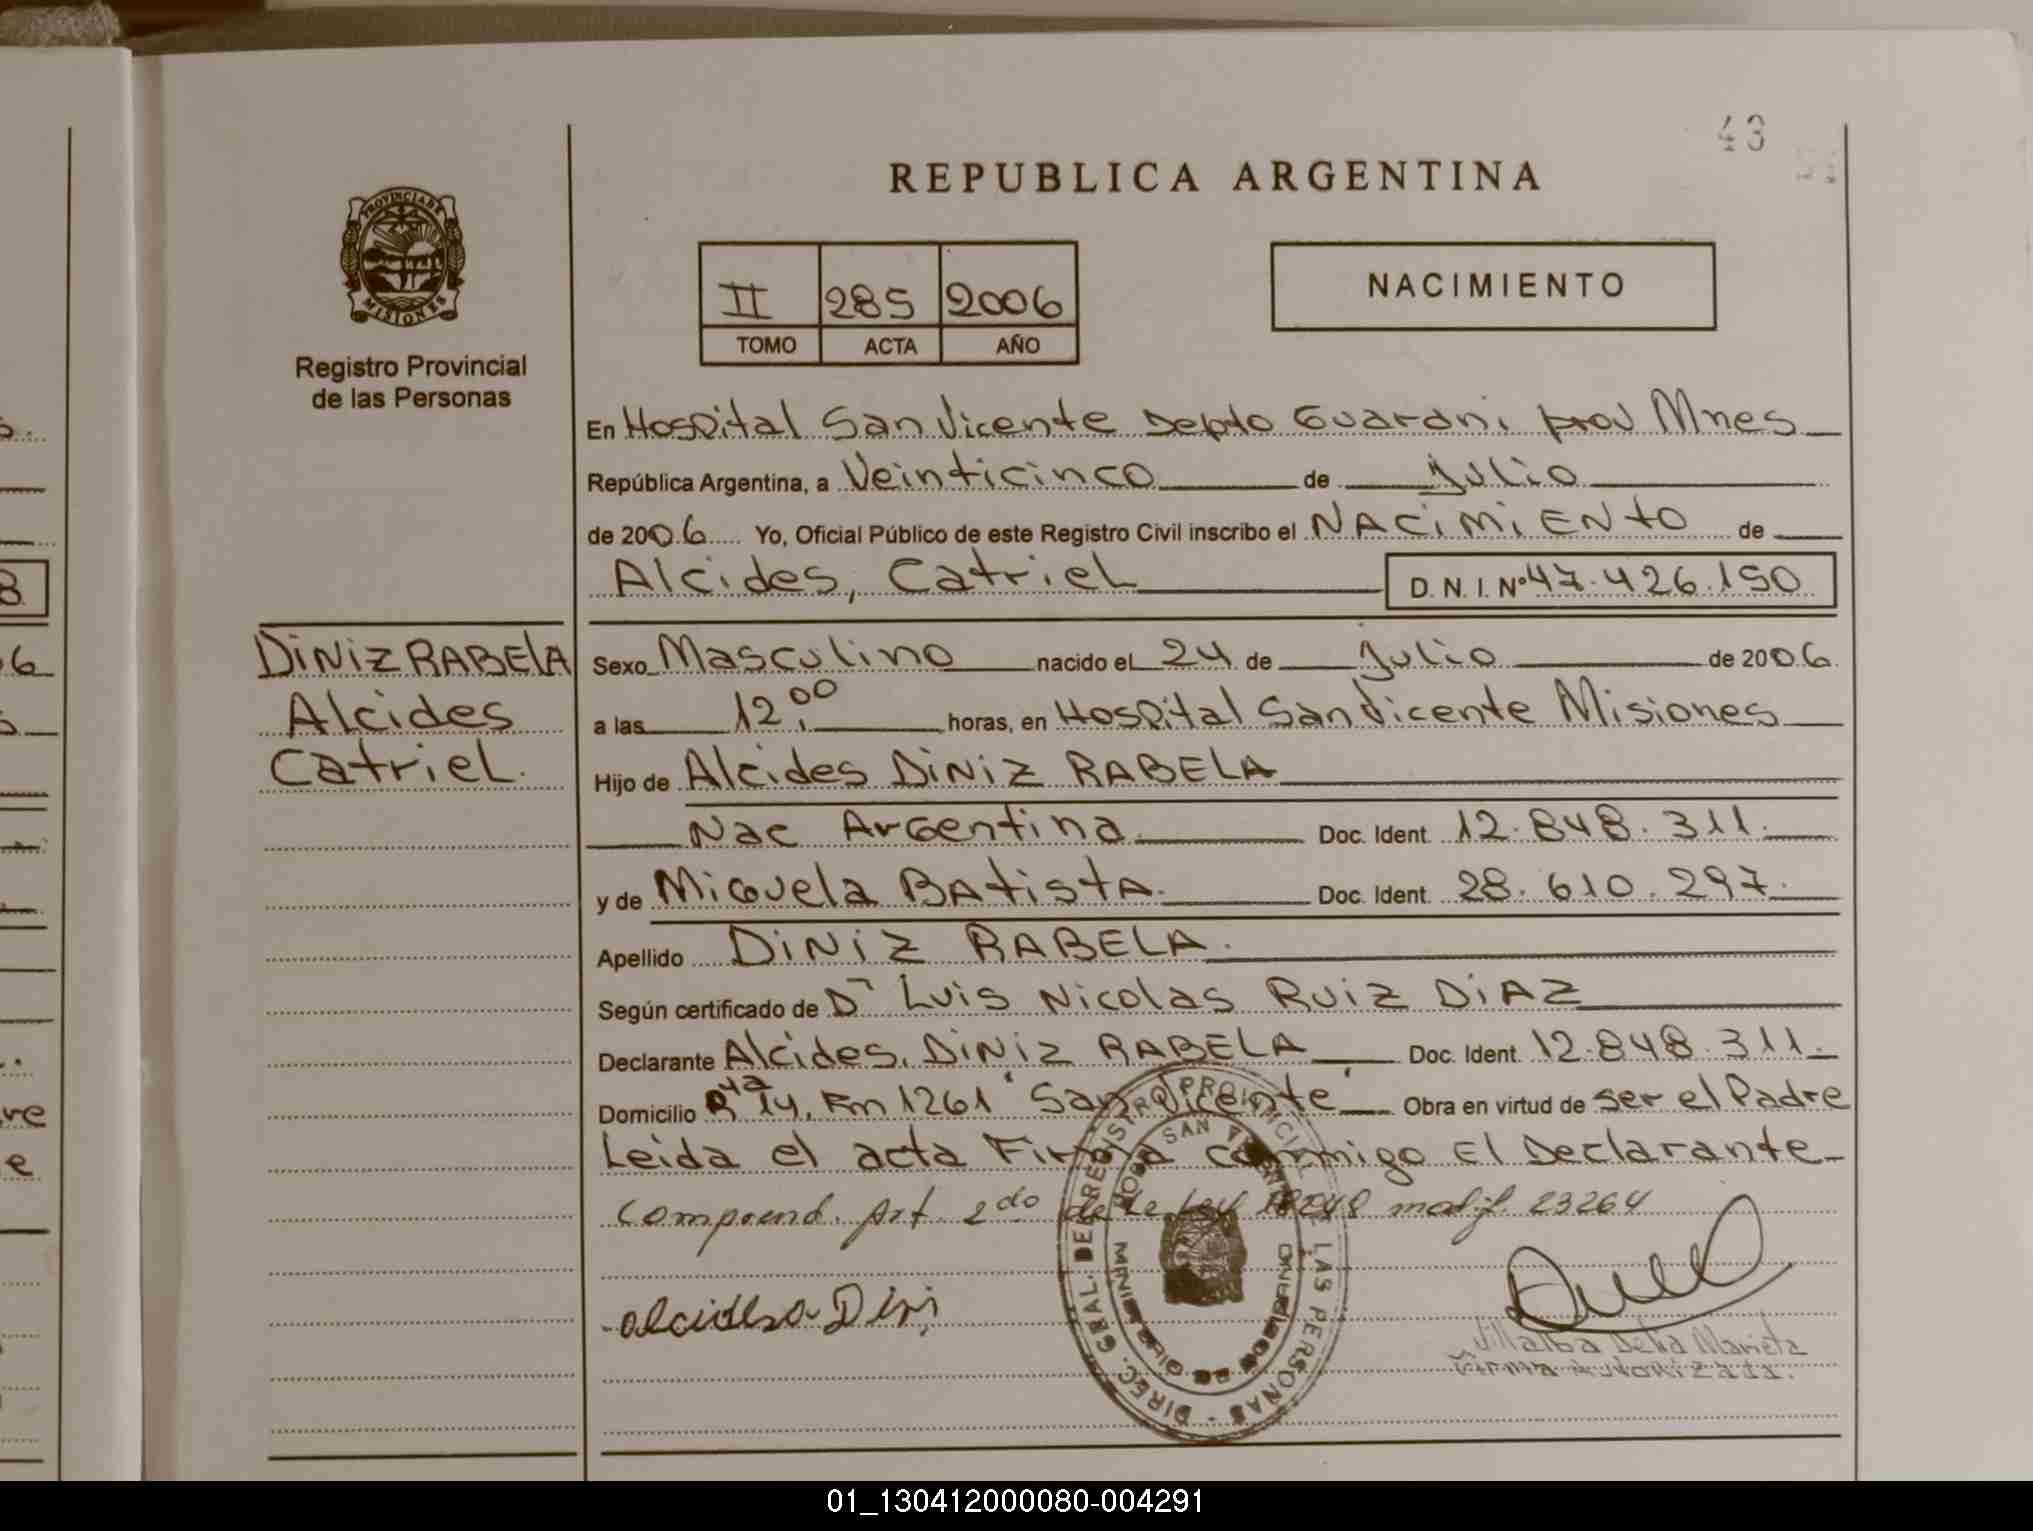 43
REPUBLICA ARGENTINA
PROVINCIA DE
MISIONES
Registro Provincial
de las Personas
II 285 2006
TOMO ACTA AÑO
NACIMIENTO
En Hospital San Vicente Depto Guarani prov Mnes
República Argentina, a Veinticinco de Julio
de 2006 Yo, Oficial Público de este Registro Civil inscribo el NACIMIENTO de
Alcides, Catriel D. N. I. Nº 47.426.150
DINIZ RABELA
Alcides
Catriel.
Sexo Masculino nacido el 24 de Julio de 2006
a las 12,00 horas, en Hospital San Vicente Misiones
Hijo de Alcides DINIZ RABELA
Nac Argentina Doc. Ident. 12.848.311.
y de Miguela BAtistA. Doc. Ident. 28.610.297.
Apellido DINIZ RABELA.
Según certificado de Dr Luis Nicolas Ruiz DIAZ
Declarante Alcides, DINIZ RABELA Doc. Ident. 12.848.311.
Domicilio Rta 14, Km 1261 "San Vicente" Obra en virtud de ser el Padre
Leida el acta Firma conmigo El Declarante
comprend. Art. 2do de la Ley 18248 modif. 23264
DIREC. GRAL. DEL REGISTRO PROVINCIAL DE LAS PERSONAS
SAN VICENTE
Villalba Delia Mariela
Firma Autorizada.
01_130412000080-004291